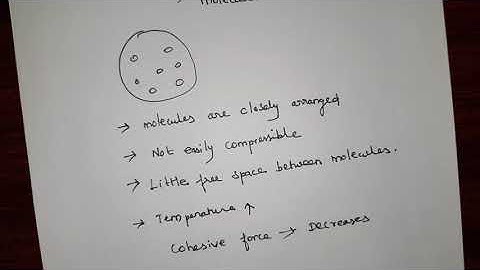 → molecules are closely arranged
→ Not easily compressible
→ Little free space between molecules.
→ Temperature ↑
Cohesive force → Decreases